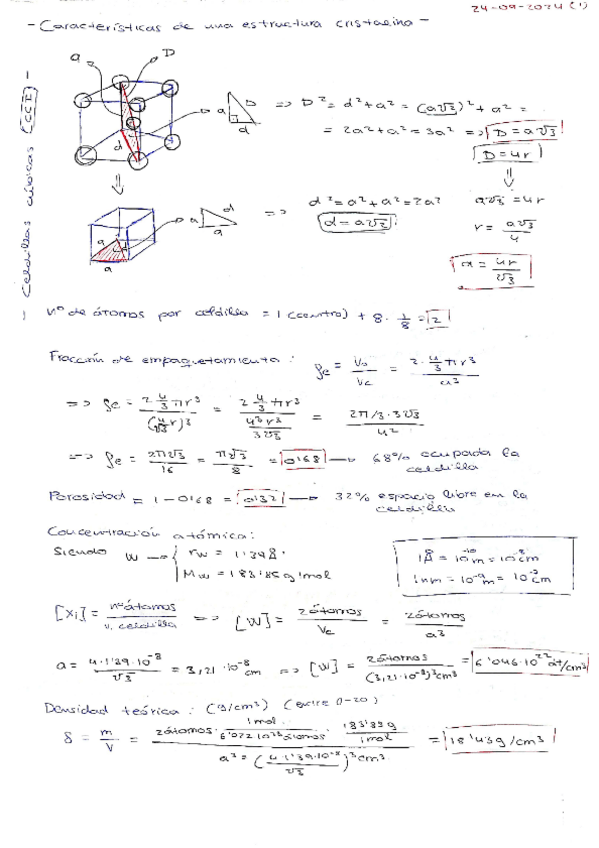 24-09-2024 (1)
- Características de una estructura cristalina -
- Celdillas cúbicas (CCI) -
a D
d
a D d => D² = d² + a² = (a√2)² + a² =
= 2a² + a² = 3a² => D = a√3
D = 4r
a a
a d a => d² = a² + a² = 2a²
d = a√2
a√3 = 4r
r = a√3/4
a = 4r/√3
nº de átomos por celdilla = 1 (centro) + 8 · 1/8 = 2
Fracción de empaquetamiento: ρe = Vo/Vc = 2 · 4/3 πr³ / a³
=> ρe = 2 4/3 πr³ / (4/√3 r)³ = 2 4/3 πr³ / (4³r³ / 3√3) = 2π/3 · 3√3 / 4²
=> ρe = 2π√3/16 = π√3/8 = 0'68 → 68% ocupada la celdilla
Porosidad = 1 - 0'68 = 0'32 → 32% espacio libre en la celdilla
Concentración atómica:
Siendo W → { rw = 1'39 Å.
Mw = 183'85 g/mol
1Å = 10⁻¹⁰ m = 10⁻⁸ cm
1nm = 10⁻⁹ m = 10⁻⁷ cm
[Xi] = nº átomos / v. celdilla => [W] = 2 átomos / Vc = 2 átomos / a³
a = 4·1'39·10⁻⁸ / √3 = 3,21 · 10⁻⁸ cm => [W] = 2 átomos / (3,21·10⁻⁸)³ cm³ = 6'046·10²² at/cm³
Densidad teórica: (g/cm³) (entre 0-20)
δ = m/V = 2 átomos · 1 mol / 6'022 10²³ átomos · 183'85 g / 1 mol / a³ = (4·1'39·10⁻⁸ / √3)³ cm³ = 18'45 g/cm³